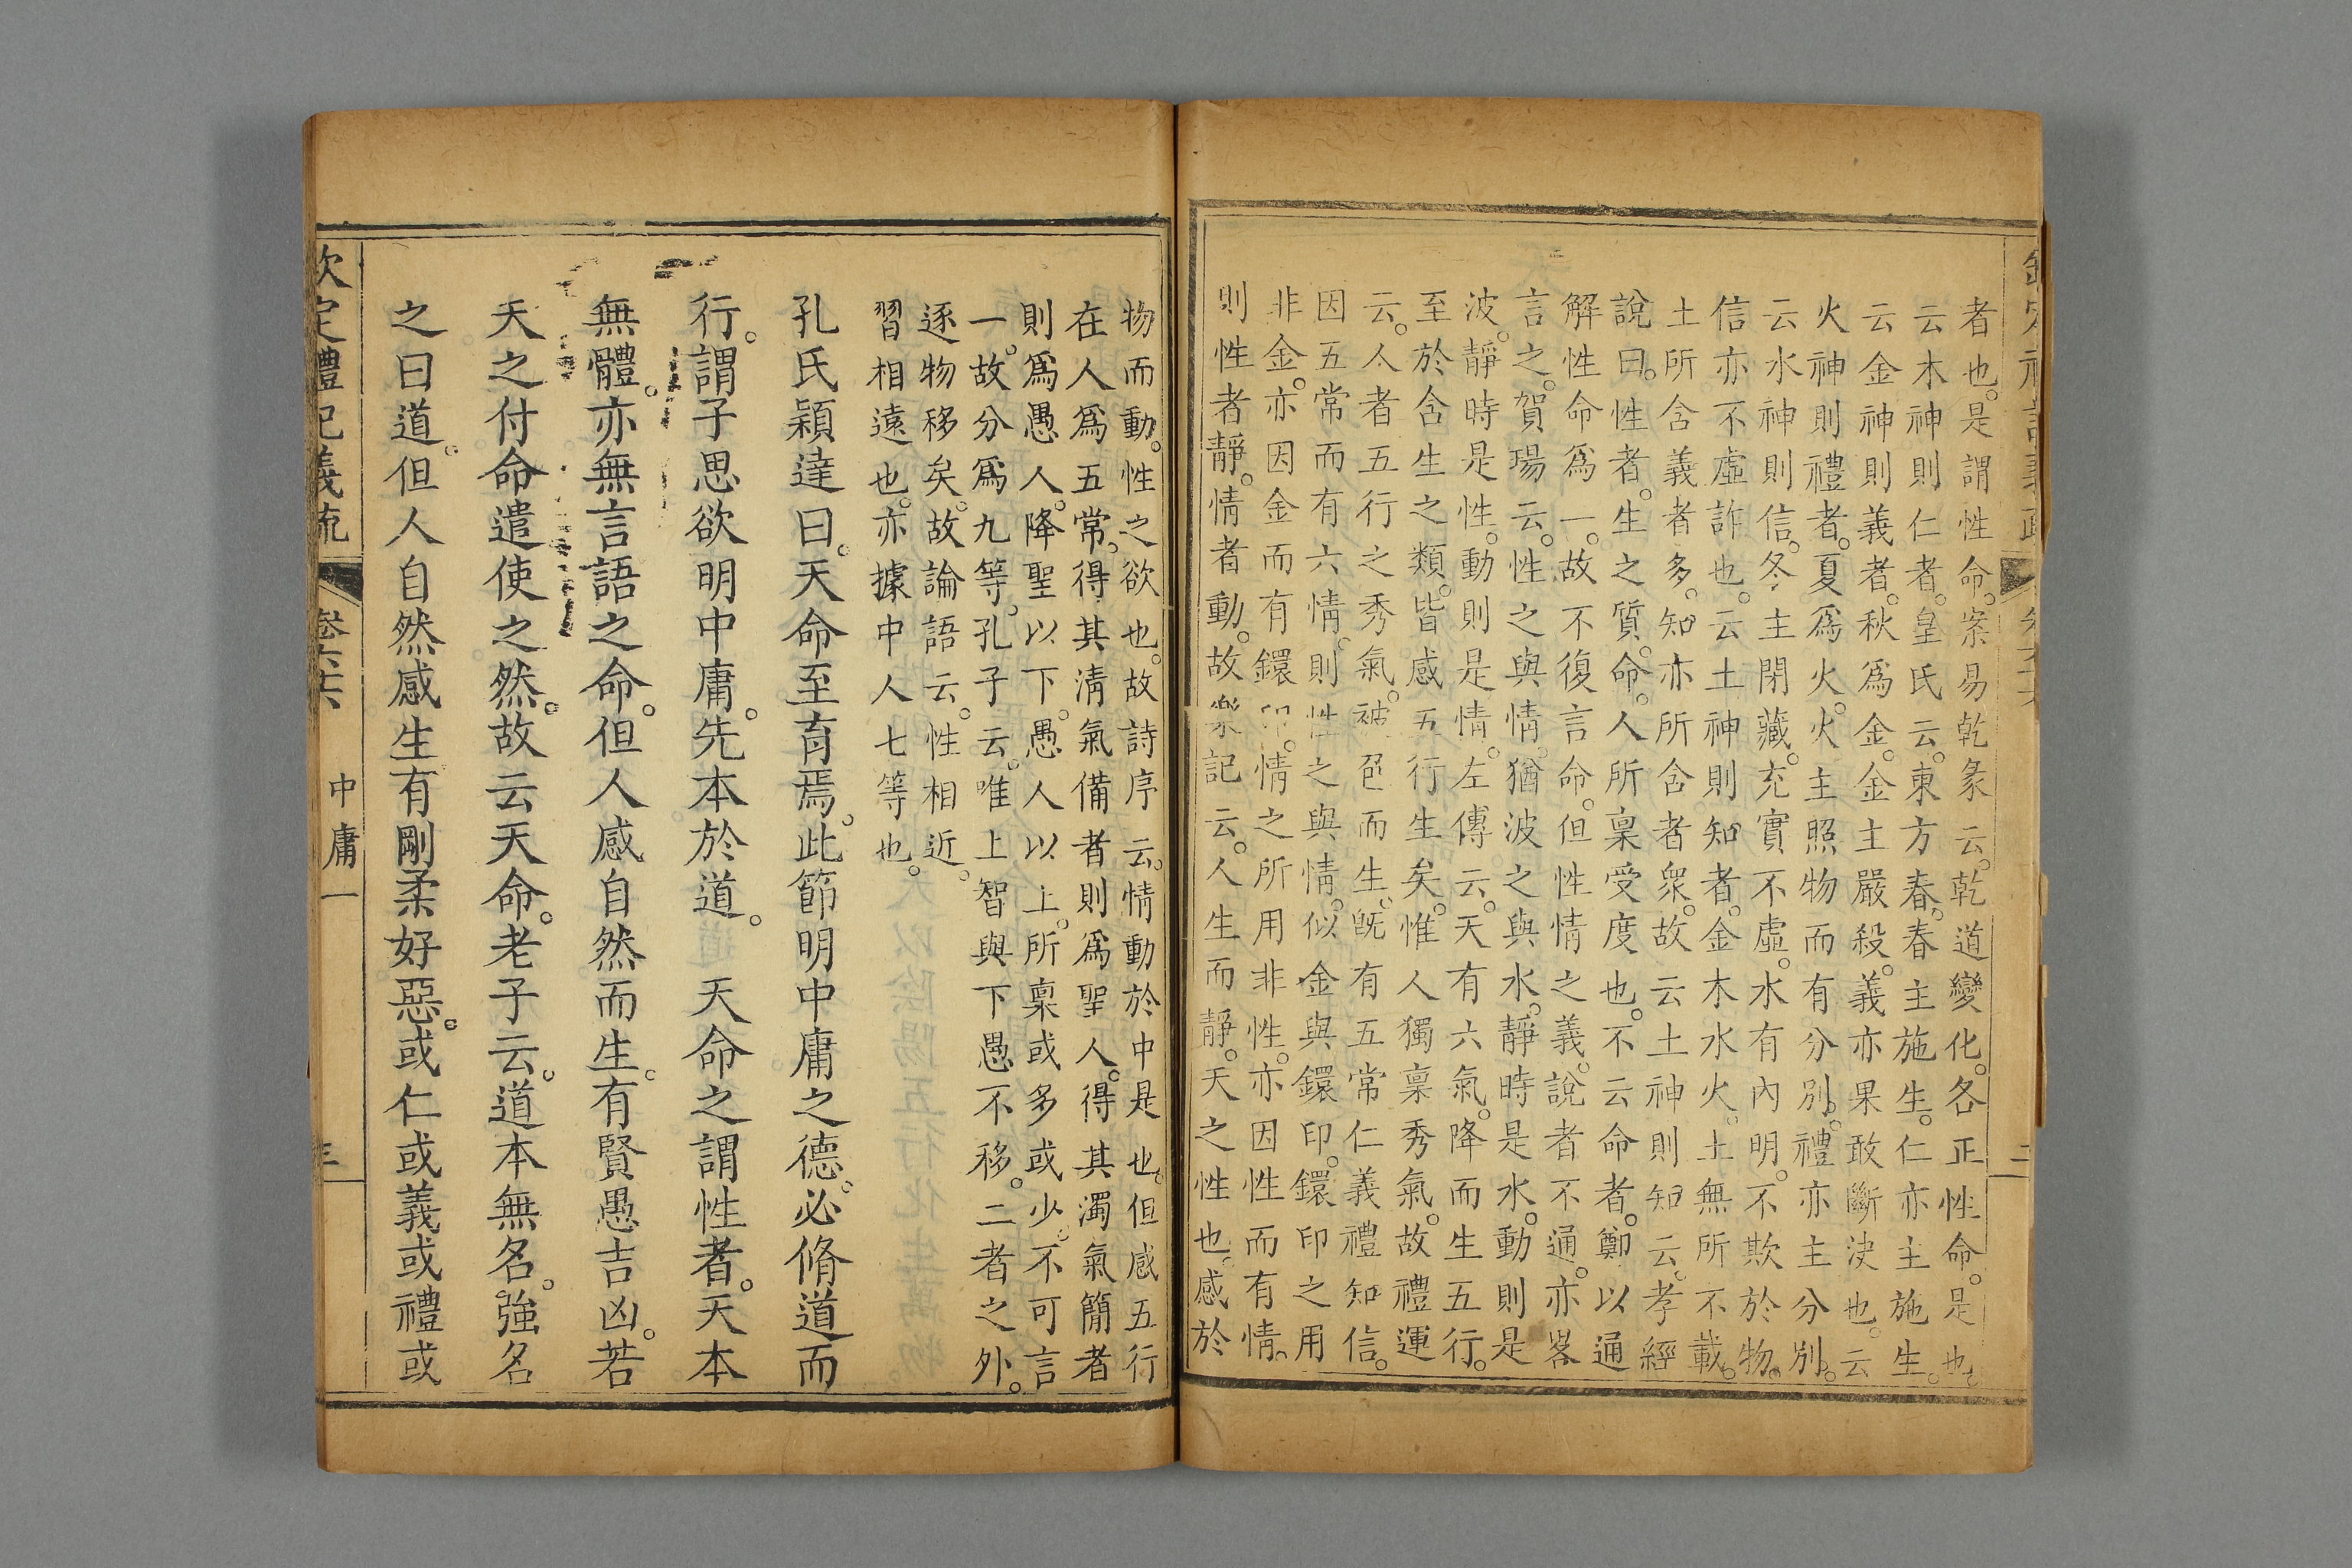 者也是謂性命案易乾彖云乾道變化各正性命是也
云木神則仁者皇氏云東方春春主施生仁亦主施生
云金神則義者秋爲金金主嚴殺義亦果敢斷決也云
火神則禮者夏爲火火主照物而有分別禮亦主分別
云水神則信冬主閉藏充實不虛水有內明不欺於物
信亦不虛詐也云土神則知者金木水火土無所不載
土所含義者多知亦所含者衆故云土神則知云孝經
說曰性者生之質命人所稟受度也不云命者鄭以通
解性命爲一故不復言命但性情之義說者不通亦畧
言之賀瑒云性之與情猶波之與水靜時是水動則是
波靜時是性動則是情左傳云天有六氣降而生五行
至於含生之類皆感五行生矣惟人獨稟秀氣故禮運
云人者五行之秀氣被色而生旣有五常仁義禮知信
因五常而有六情則性之與情似金與鐶印鐶印之用
非金亦因金而有鐶印情之所用非性亦因性而有情
則性者靜情者動故樂記云人生而靜天之性也感於
物而動性之欲也故詩序云情動於中是也但感五行
在人爲五常得其淸氣備者則爲聖人得其濁氣簡者
則爲愚人降聖以下愚人以上所稟或多或少不可言
一故分爲九等孔子云唯上智與下愚不移二者之外
逐物移矣故論語云性相近
習相遠也亦據中人七等也
孔氏穎達曰天命至育焉此節明中庸之德必脩道而
行謂子思欲明中庸先本於道　天命之謂性者天本
無體亦無言語之命但人感自然而生有賢愚吉凶若
天之付命遣使之然故云天命老子云道本無名強名
之曰道但人自然感生有剛柔好惡或仁或義或禮或
欽定禮記義疏　卷六六　中庸一　三